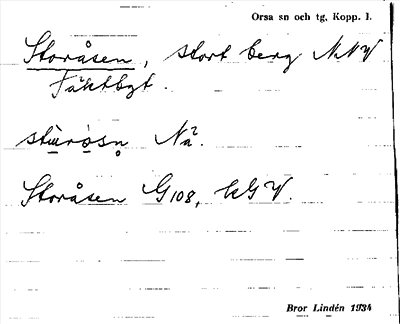 Orsa sn och tg. Kopp. l.
Storåsen, stort berg NNV
Fäktbgt.
stùrósn Nä².
Storåsen G108, kGV.
Bror Lindén 1934